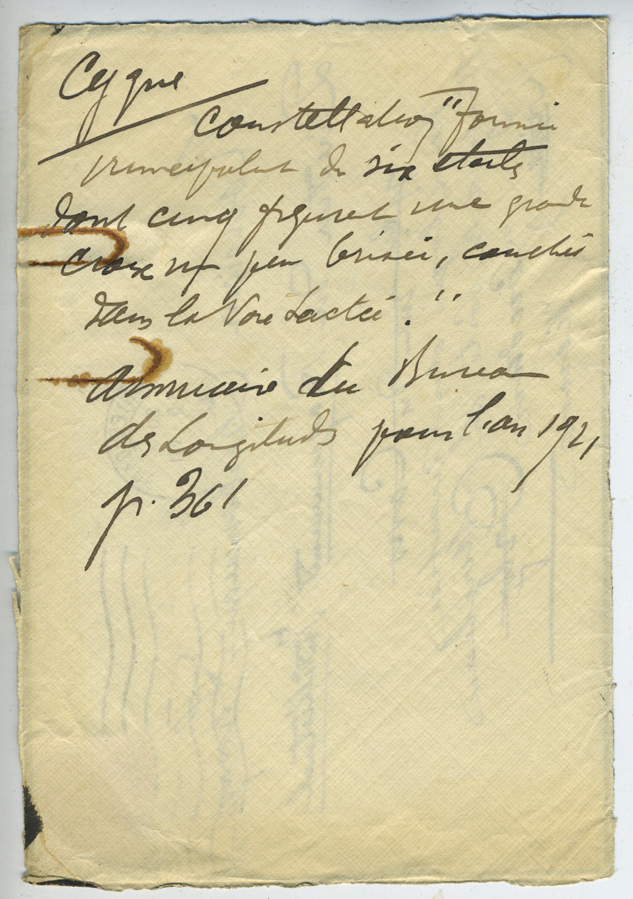 Cygne
constellation "formée
principalement de six étoiles
dont cinq figurent une grande
croix un peu brisée, couchée
dans la Voie Lactée."
Annuaire du Bureau
des Longitudes pour l'an 1921
p. 361